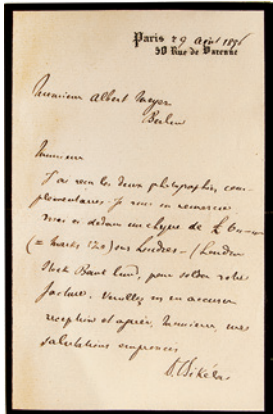 Paris 29 Août 1896
50 Rue de Varenne
Monsieur Albert Meyer
Berlin
Monsieur
J'ai reçu les deux photographies com-
plémentaires. Je vous en remercie
Voici ci dedans un chèque de £ 6-
(= marks 120) sur Londres - (London
Bank Limd, pour solder votre
facture. Veuillez m'en accuser
réception et agréer, Monsieur, mes
salutations empressées
D. Bikélas